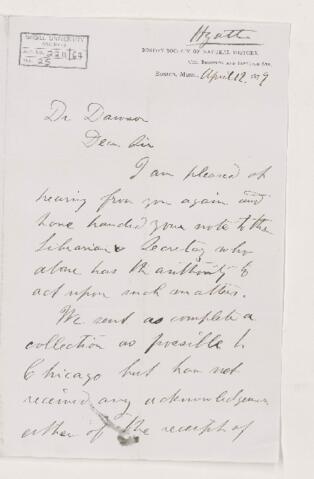 Hyatt
McGILL UNIVERSITY
ARCHIVES
ACC. NO.
REF. 25
BOSTON SOCIETY OF NATURAL HISTORY,
COR. BERKELEY AND BOYLSTON STS.
BOSTON, MASS., April 12, 1879
Dr Dawson
Dear Sir
I am pleased at
hearing from you again and
have handed your note to the
Librarian & Secretary who
alone has the authority to
act upon such matters.
We sent as complete a
collection as possible to
Chicago but have not
received any acknowledgement
either of the receipt of